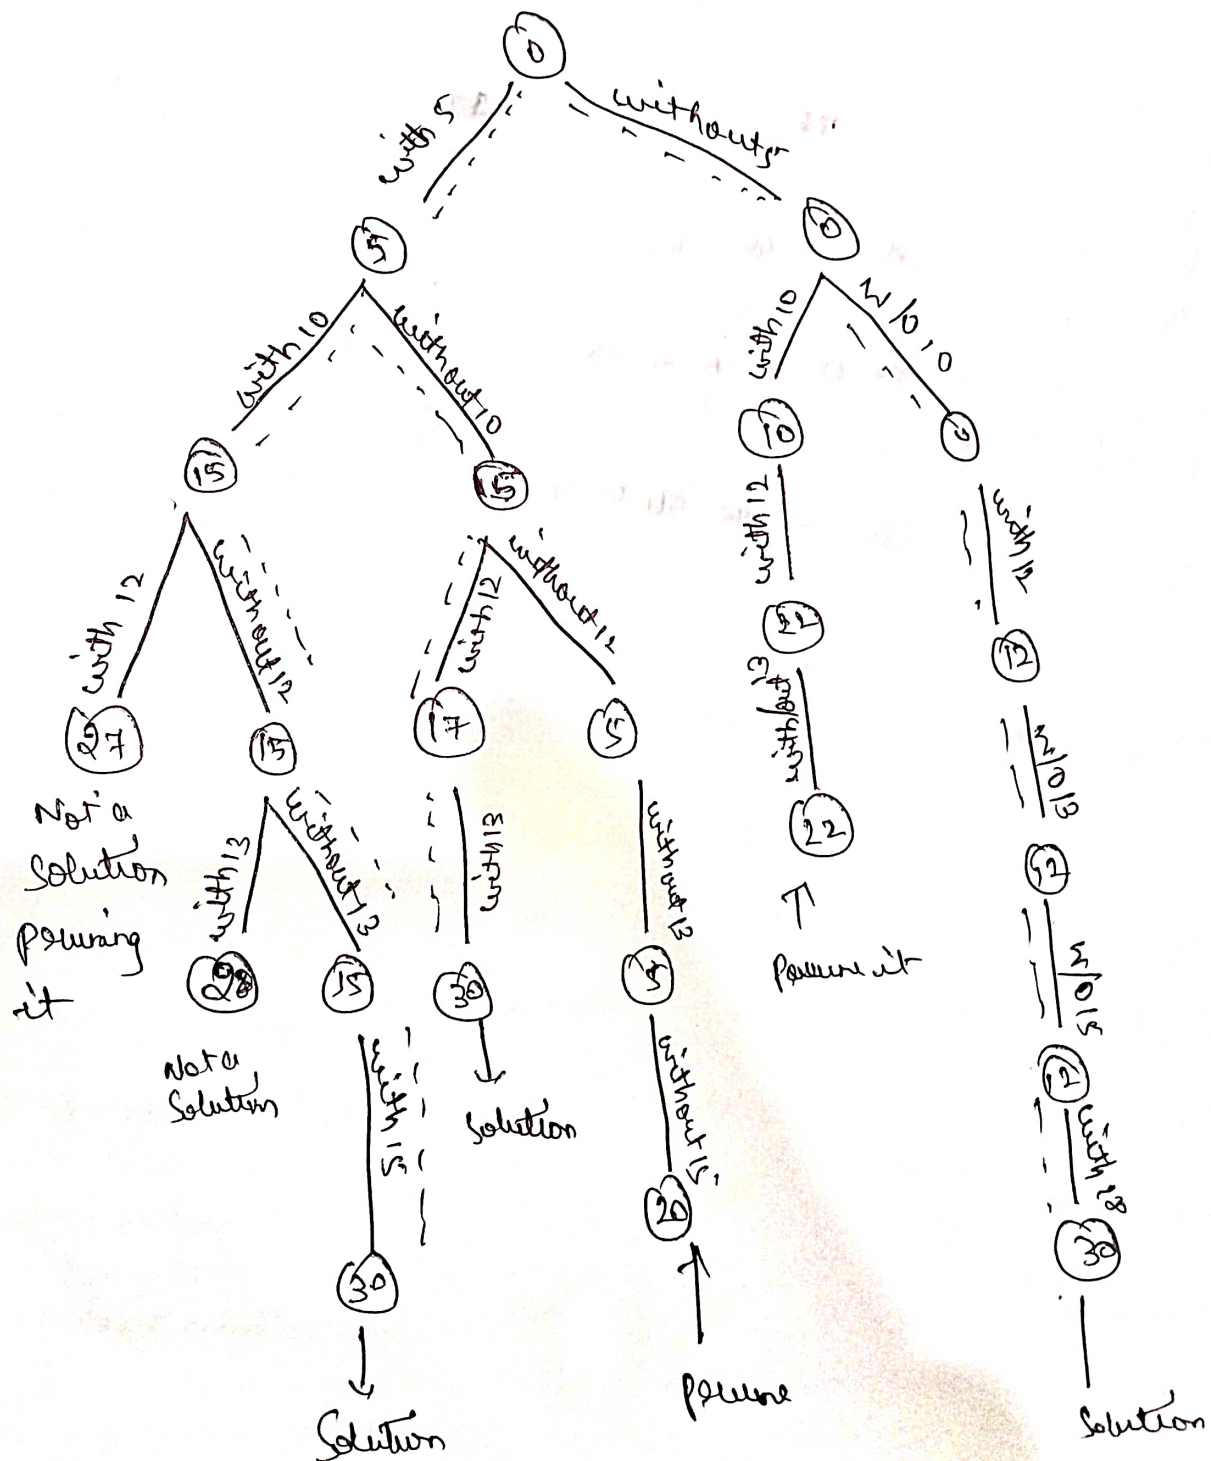 0
with 5
without 5
5
0
with 10
without 10
with 10
w/o 10
15
15
10
0
with 12
without 12
with 12
without 12
with 12
with 12
27
15
17
5
22
12
Not a
Solution
pruning
it
with 13
without 13
with 13
without 13
without 13
w/o 13
28
15
30
5
22
12
Not a
Solution
Solution
Prune it
with 15
without 15
w/o 15
30
20
12
with 28
30
Solution
prune
Solution